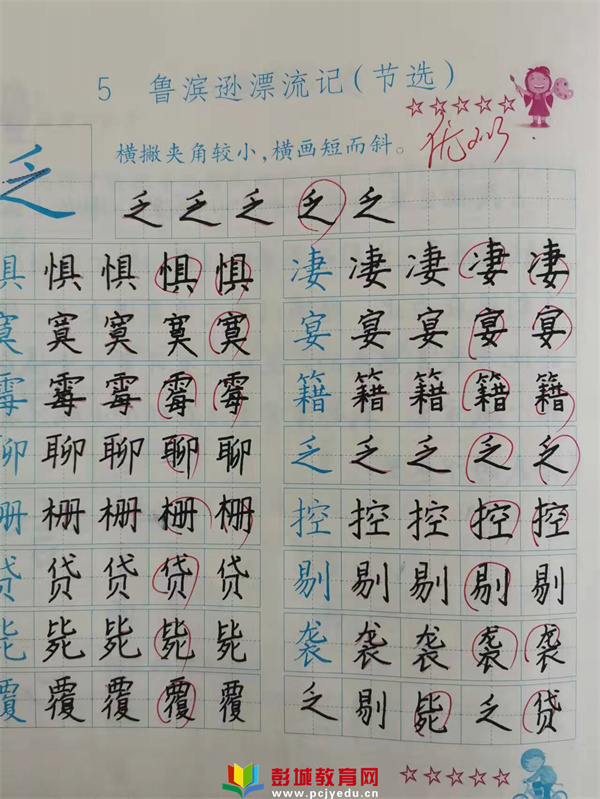 5 鲁滨逊漂流记(节选)
横撇夹角较小,横画短而斜。 优
乏 乏 乏 乏 乏 乏
惧 惧 惧 惧 惧 凄 凄 凄 凄 凄
寞 寞 寞 寞 寞 宴 宴 宴 宴 宴
霉 霉 霉 霉 霉 籍 籍 籍 籍 籍
聊 聊 聊 聊 聊 乏 乏 乏 乏 乏
栅 栅 栅 栅 栅 控 控 控 控 控
贷 贷 贷 贷 贷 剔 剔 剔 剔 剔
毙 毙 毙 毙 毙 袭 袭 袭 袭 袭
覆 覆 覆 覆 覆 乏 剔 毙 乏 贷
彭城教育网
www.pcjyedu.cn